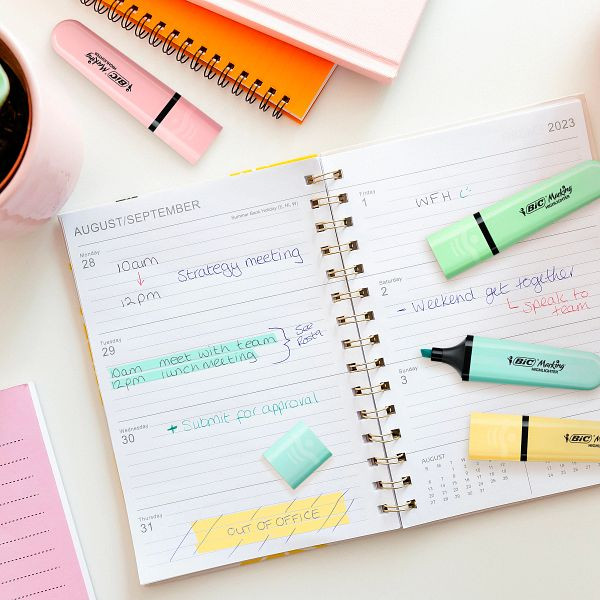 BIC Marking
HIGHLIGHTER
AUGUST/SEPTEMBER
Summer Bank Holiday (E, NI, W)
Monday
28
10am
12pm
Strategy meeting
Tuesday
29
10am meet with team
12pm lunch meeting
See
Rota
Wednesday
30
+ Submit for approval
Thursday
31
OUT OF OFFICE
2023
Friday
1
WFH
BIC Marking
HIGHLIGHTER
Saturday
2
- Weekend get together
speak to
team
Sunday
3
BIC Marking
HIGHLIGHTER
BIC Mark
HIGHLIG
AUGUST